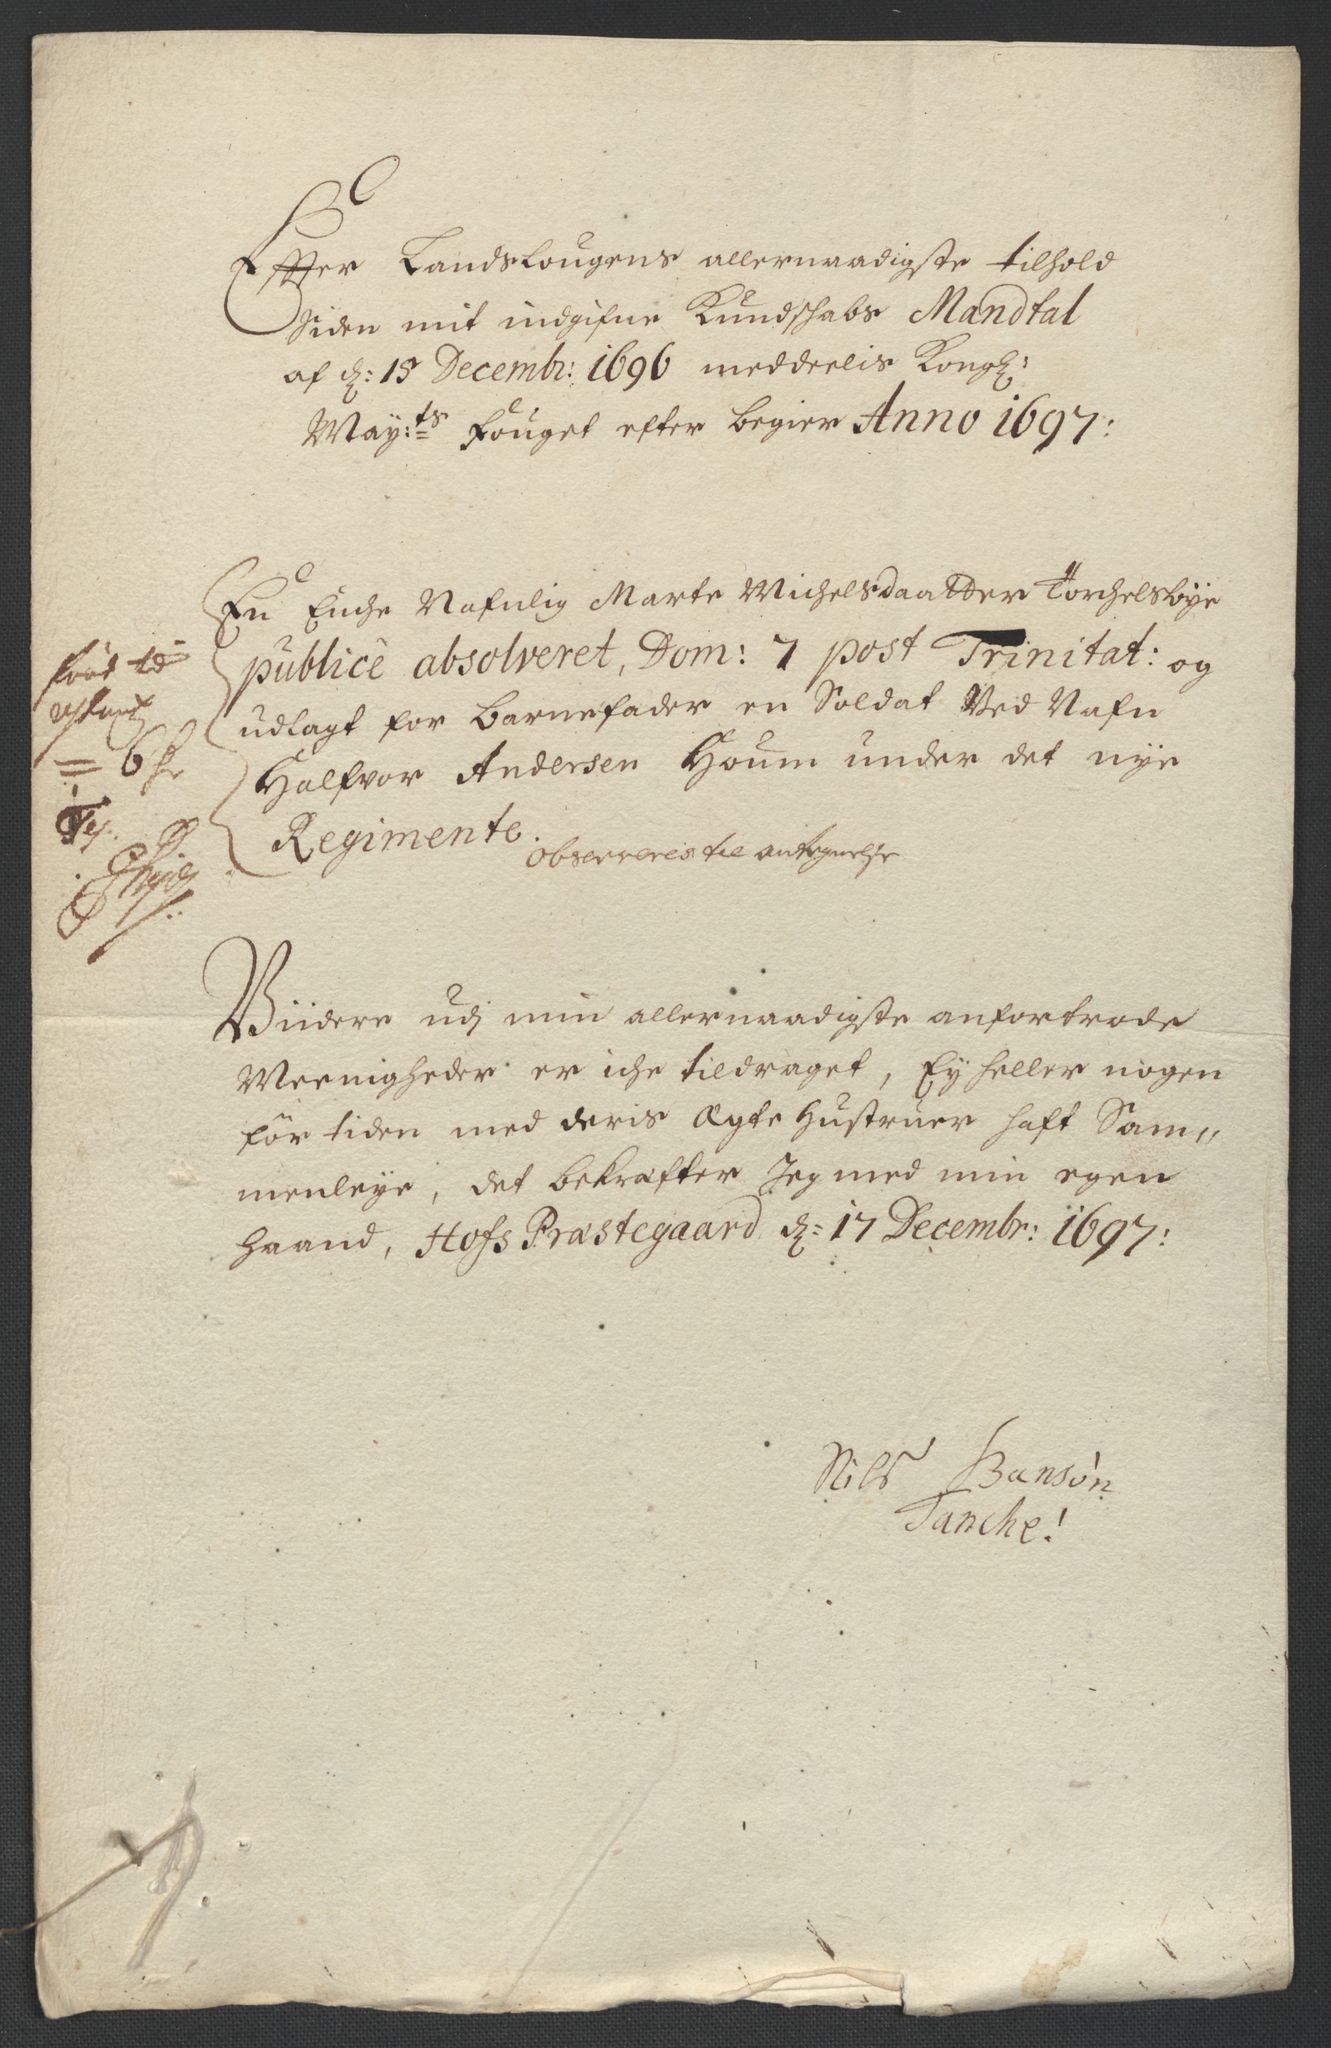 Effter Landslougens allernaadigste tilhold
Siden mit indgifne Kundschabs Mandtal
af d: 15 Decembr: 1696 meddeelis Kongl:
May:ts Fouget efter begier Anno 1697:
En Enche Nafnlig Marte Michelsdaatter Torchelsbÿe
publicè absolveret, Dom: 7 post Trinitat: og
udlagt for Barnefader en Soldat Ved Nafn
Halfvor Andersen Houm under det nÿe
Regimente.
Observeres til antegnelse
ført til
= 6
Viidere udj min allernaadigste anfortrode
Meenigheder er iche tildraget, Ey heller nogen
før tiden med deris Ægte Hustruer haft Sam,,
menleÿe, det bekræfter Jeg med min egen
haand, Hofs Præstegaard d: 17 Decembr: 1697:
Nils Hansøn
Tanche!